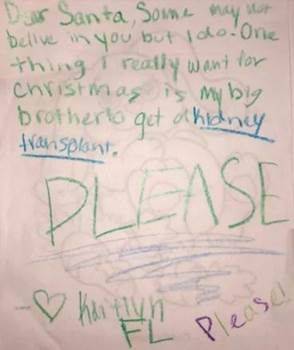 Dear Santa, Some may not
belive in you but I do. One
thing i really want for
christmas is my big
brother to get a kidney
transplant.
PLEASE
- ♡ Kaitlyn
FL Please!